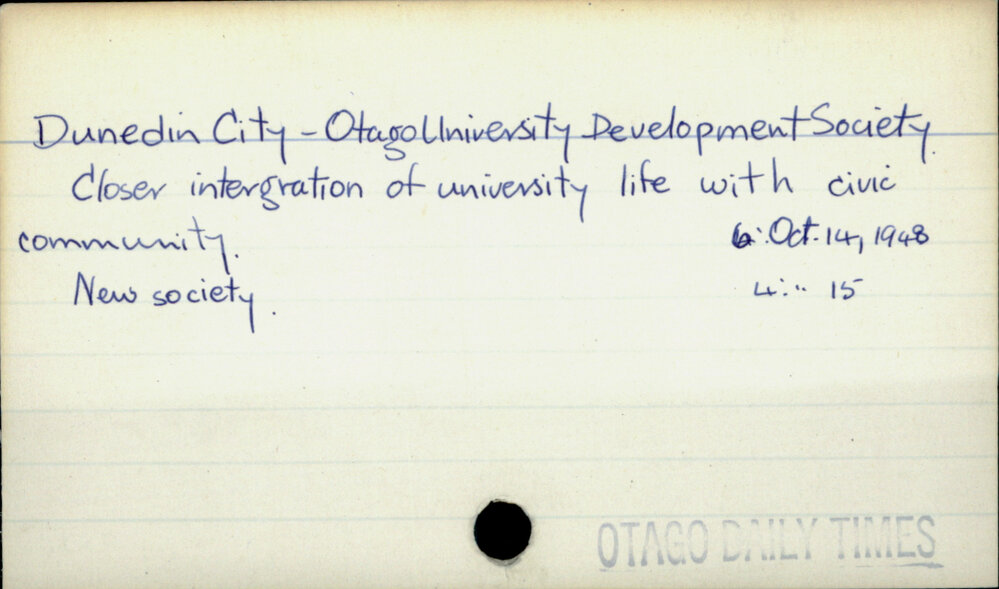 Dunedin City - Otago University Development Society.
Closer intergration of university life with civic
community. 6: Oct. 14, 1948
New society. 4: " 15
OTAGO DAILY TIMES